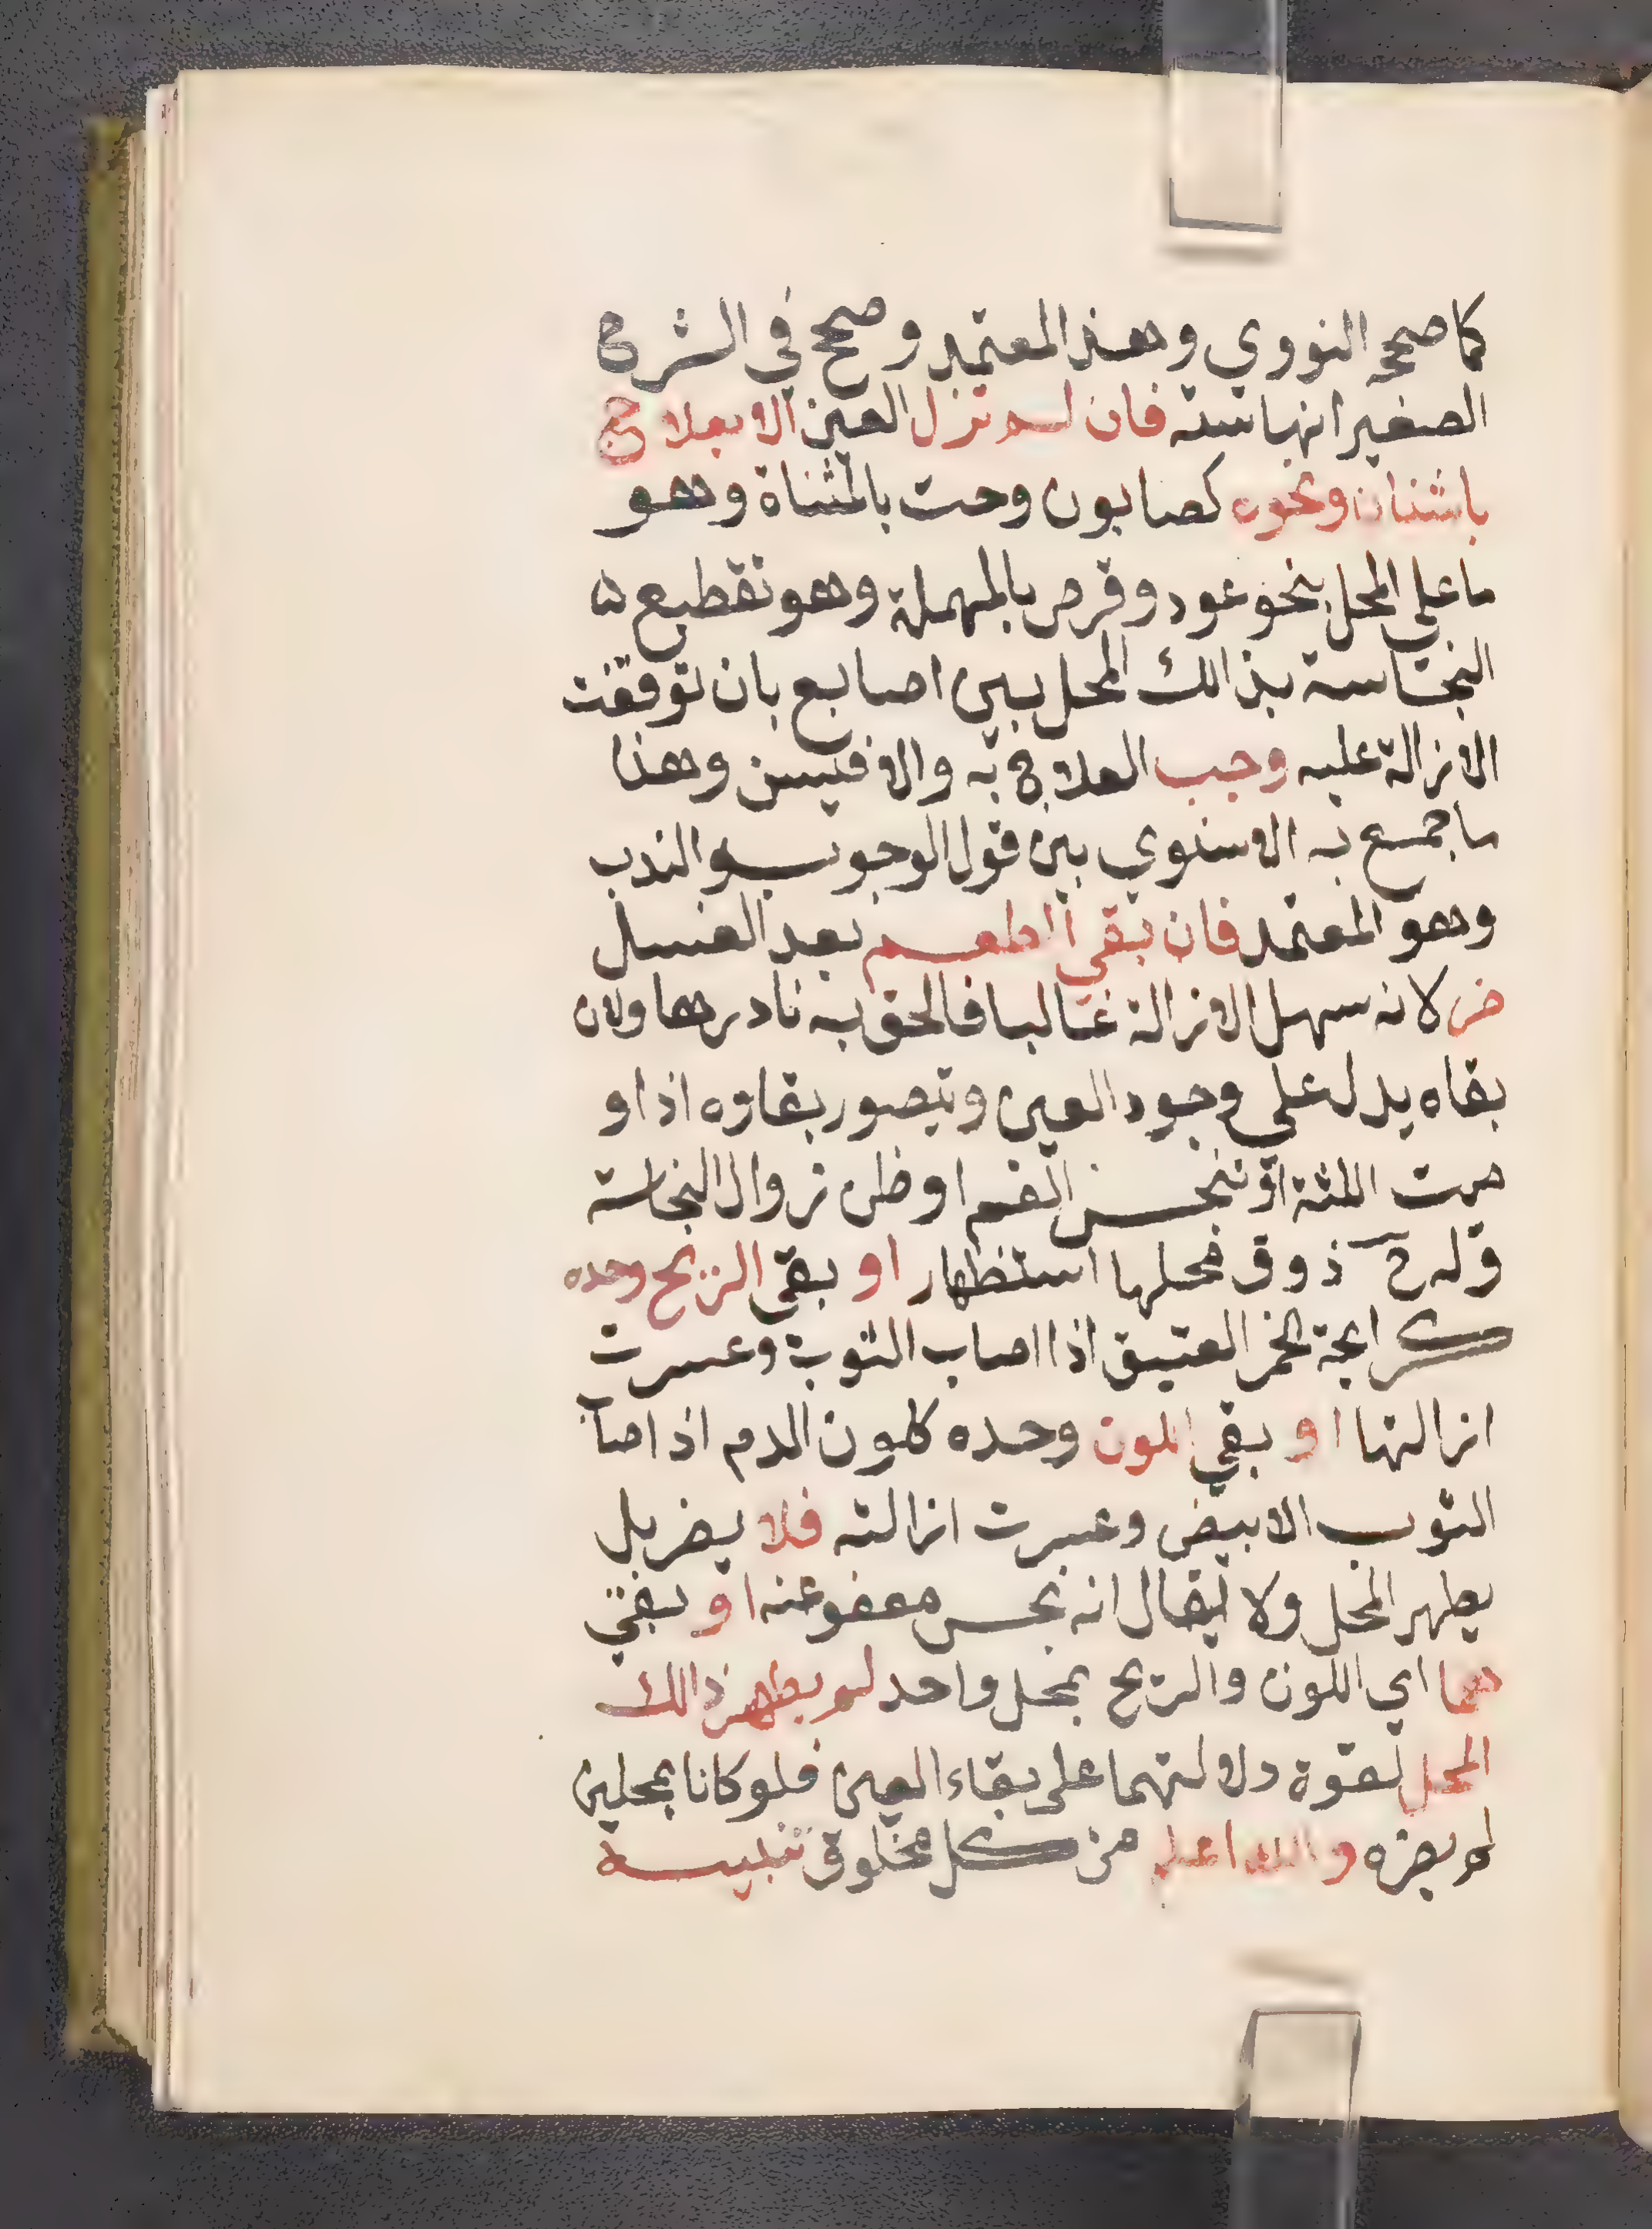 كما صححه النووي وهذا المعتمد وصحح في الشرح
الصغير انها سنة فان لم تزل العين الا بعلاج
باشنان ونحوه كصابون وحت بالمثناة وهو
ما على المحل بنحو عود وقرص بالمهملة وهو تقطيع
النجاسة بذالك المحل بين اصابع بان توقفت
الازالة عليه وجب العلاج به والا فيسن وهذا
ما جمع به الاسنوي بين قول الوجوب والندب
وهو المعتمد فان بقي الطعم بعد الغسل
ضر لانه سهل الازالة غالبا فالحق به نادرها ولان
بقاه يدل على وجود العين ويتصور بقاوه اذا و
ميت اللثة او تنجس الفم او ظن زوال النجاسة
وله ذوق محلها استظهار او بقي الريح وحده
كرايحة الخمر العتيق اذا اصاب الثوب وعسرت
ازالتها او بقي اللون وحده كلون الدم اذا اصاب
الثوب الابيض وعسرت ازالته فلا يضر بل
يطهر المحل ولا يقال انه نجس معفو عنه او بقي
هما اي اللون والريح بمحل واحد لم يطهر ذالك
المحل لقوة دلالتهما على بقاء العين فلو كانا بمحلين
لم يضره والله اعلم من كل مخلوق تنبيه